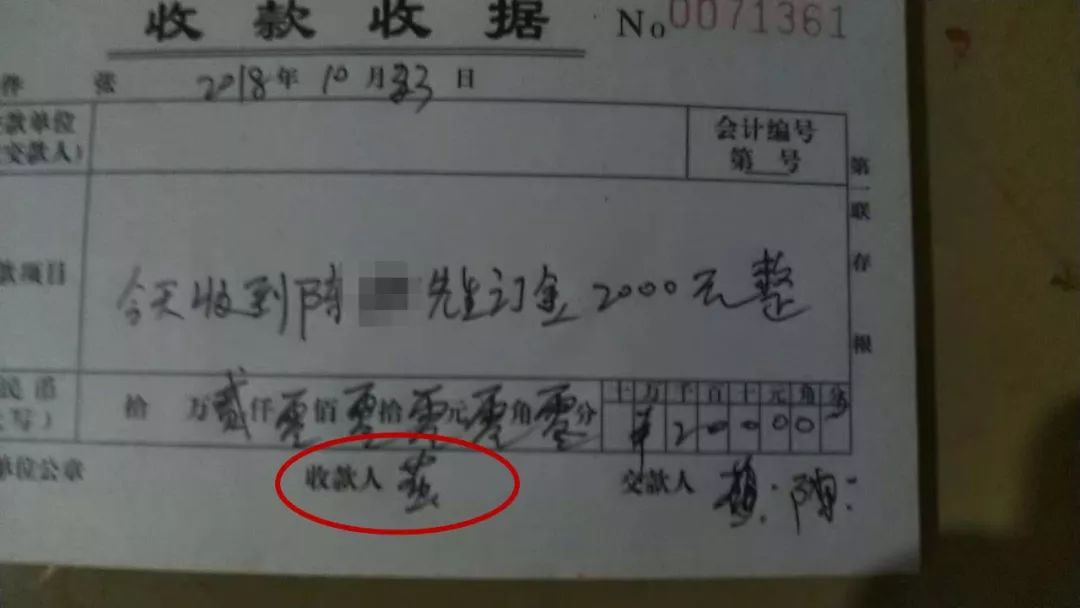 收款收据 No 0071361
件 张 2018年10月23日
款单位 会计编号
交款人) 第 号
第一联存根
款项目 今天收到陈 先生订金2000元整
民币 拾 万贰仟零佰零拾零元零角零分 十万千百十元角分
写) ¥200000
单位公章 收款人 交款人 陈: